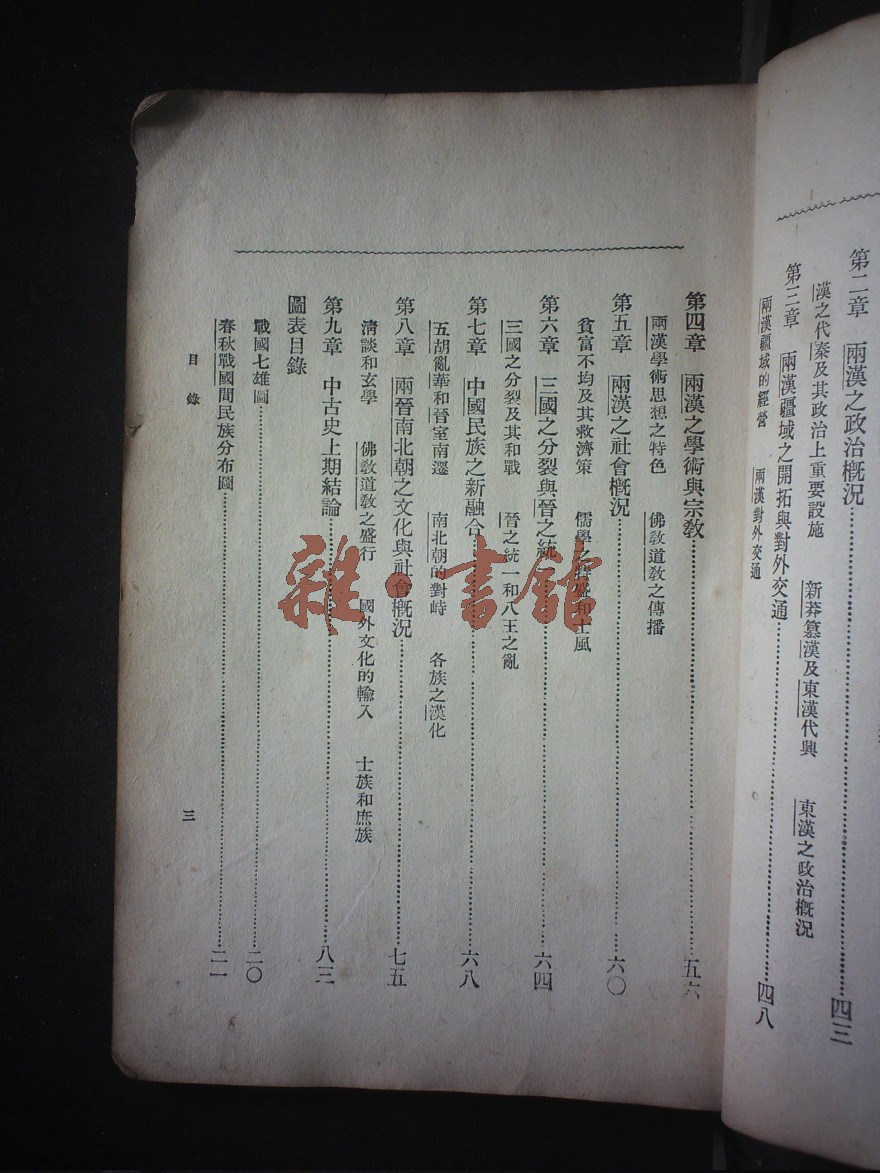 第二章　兩漢之政治概況……四三
漢之代秦及其政治上重要設施　新莽篡漢及東漢代興　東漢之政治概況
第三章　兩漢疆域之開拓與對外交通……四八
兩漢疆域的經營　兩漢對外交通
第四章　兩漢之學術與宗教……五六
兩漢學術思想之特色　佛教道教之傳播
第五章　兩漢之社會概況……六〇
貧富不均及其救濟策　儒學之特盛和士風
第六章　三國之分裂與晉之統一……六四
三國之分裂及其和戰　晉之統一和八王之亂
第七章　中國民族之新融合……六八
五胡亂華和晉室南遷　南北朝的對峙　各族之漢化
第八章　兩晉南北朝之文化與社會概況……七五
清談和玄學　佛教道教之盛行　國外文化的輸入　士族和庶族
第九章　中古史上期結論……八三
圖表目錄
戰國七雄圖……二〇
春秋戰國間民族分布圖……二一
目錄
三
雜·書館